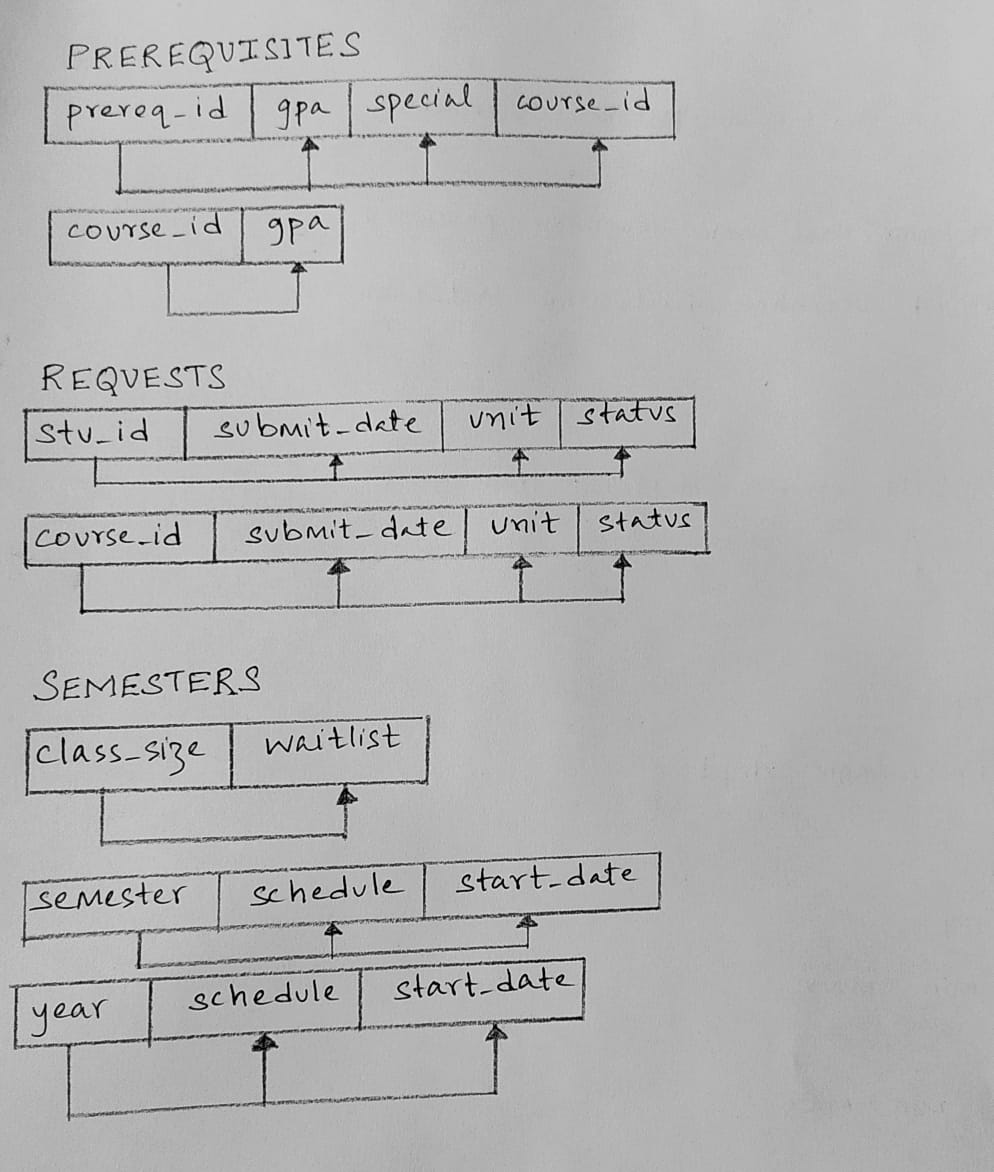 PREREQUISITES
prereq_id gpa special course_id
course_id gpa
REQUESTS
stu_id submit_date unit status
course_id submit_date unit status
SEMESTERS
class_size waitlist
semester schedule start_date
year schedule start_date